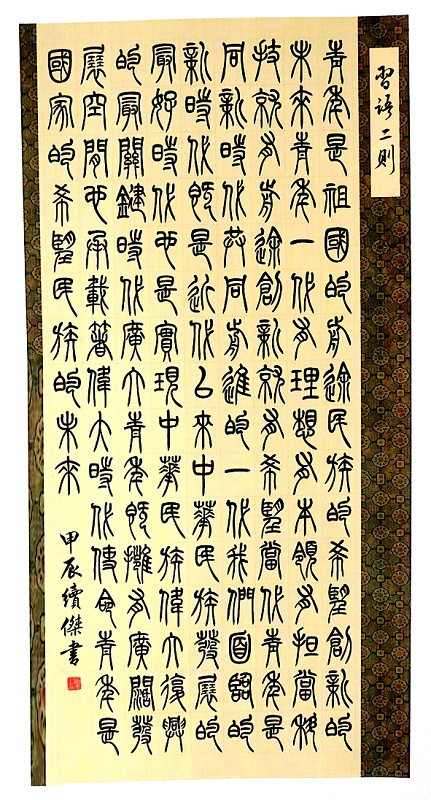 習語二則
青年是祖國的前途民族的希望創新的
未來青年一代有理想有本領有担當科
技就有前途創新就有希望當代青年是
同新時代共同前進的一代我們面臨的
新時代既是近代以來中華民族發展的
最好時代也是實現中華民族偉大復興
的最關鍵時代廣大青年既擁有廣闊發
展空間也承載著偉大時代使命青年是
國家的希望民族的未來
甲辰續傑書